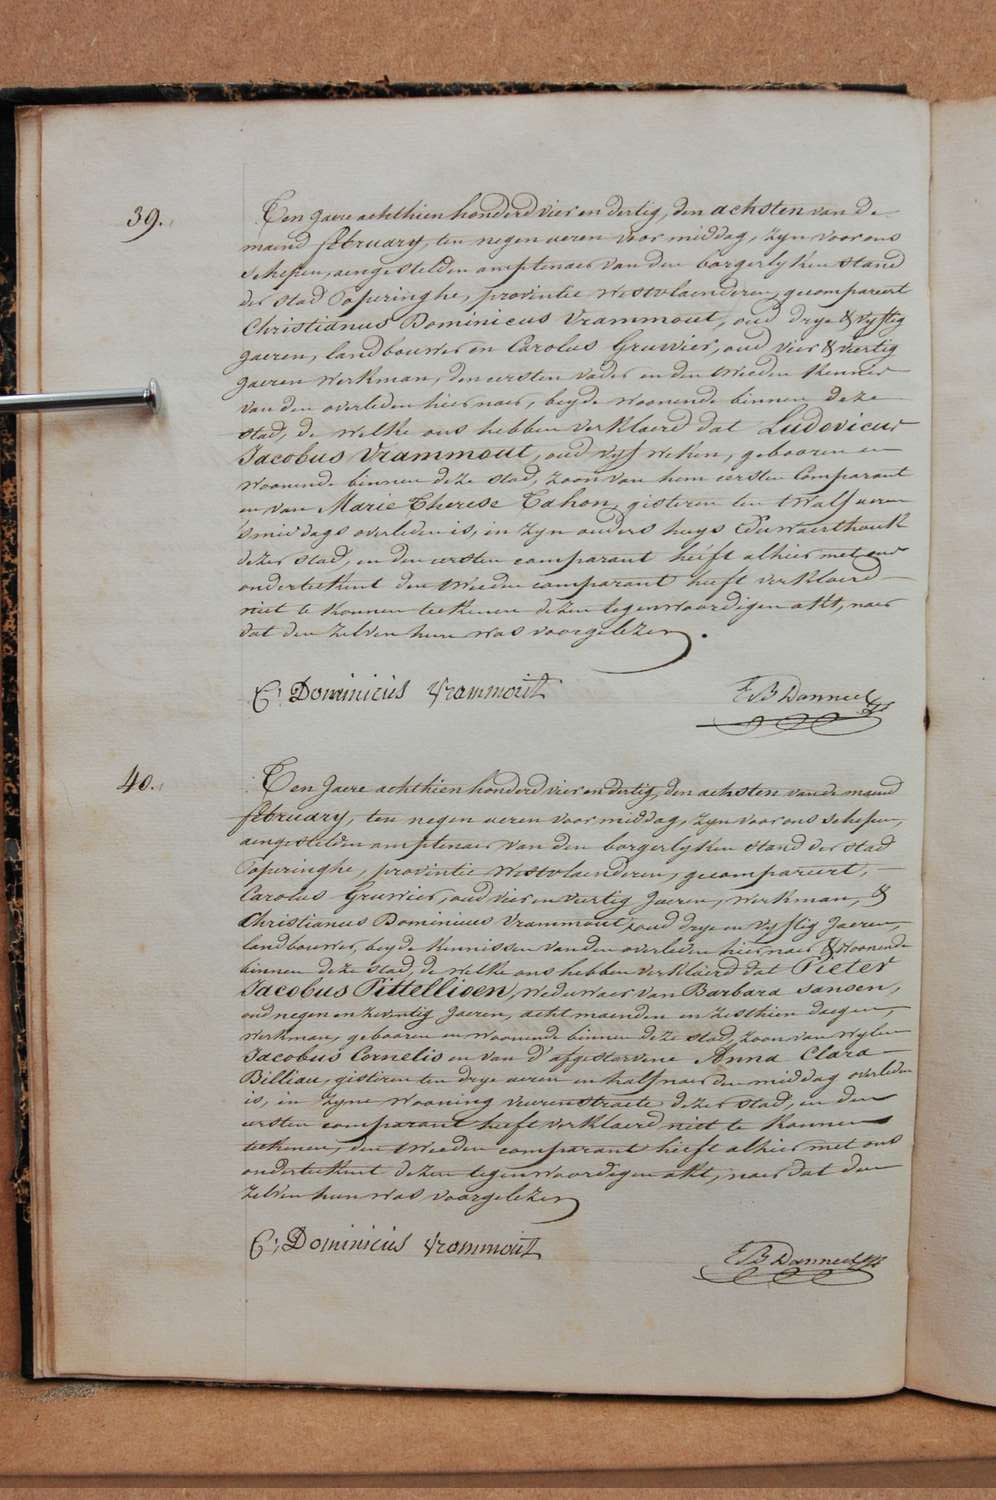 39.
Ten jaere achthien honderd vier en dertig, den achsten van de
maend february, ten negen ueren voor middag, zyn voor ons
schepen, aengestelden amptenaer van den borgerlyken stand
der stad Poperinghe, provintie Westvlaenderen, gecompareert
Christianus Dominicus Vrammout, oud drye & vyftig
jaeren, landbouwer en Carolus Gruwier, oud vier & viertig
jaeren werkman, den eersten vader en den tweeden kenner
van den overleden hiernaer, beyde woonende binnen deze
stad, de welke ons hebben verklaerd dat Ludovicus
Jacobus Vrammout, oud vyf weken, gebooren en
woonende binnen deze stad, zoon van hem eersten comparant
en van Marie Therese Cahon, gisteren ten twalf ueren
'smiddags overleden is, in zyn ouders huys Eduwaerthoek
dezer stad, en den eersten comparant heeft alhier met ons
onderteekent den tweeden comparant heeft verklaerd
niet te konnen teekenen dezen tegenwoordigen akt, naer
dat den zelven hun was voorgelezen.
C: Dominicus Vrammout
F B Danneel
40.
Ten Jaere achthien honderd vier en dertig, den achsten van de maend
february, ten negen ueren voor middag, zyn voor ons schepen,
aengestelden amptenaer van den borgerlyken stand der stad
Poperinghe, provintie Westvlaenderen, gecompareert,
Carolus Gruwier, oud vier en viertig Jaeren, werkman, &
Christianus Dominicus Vrammout, oud drye en vyftig Jaeren,
landbouwer, beyde kennissen van den overleden hiernaer & woonende
binnen deze stad, de welke ons hebben verklaerd dat Pieter
Jacobus Pittellioen, weduwaer van Barbara Jansen,
oud negen en zeventig Jaeren, acht maenden en zesthien daegen,
werkman, gebooren en woonende binnen deze stad, zoon van wylen
Jacobus Cornelis en van d'afgestorvene Anna Clara
Billiau, gisteren ten drye ueren en half naer den middag overleden
is, in zyne wooning veurenstraete dezer stad, en den
eersten comparant heeft verklaerd niet te konnen
teekenen, den tweeden comparant heeft alhier met ons
onderteekent dezen tegenwoordigen akt, naer dat den
zelven hun was voorgelezen
C: Dominicus Vrammout
F B Danneel